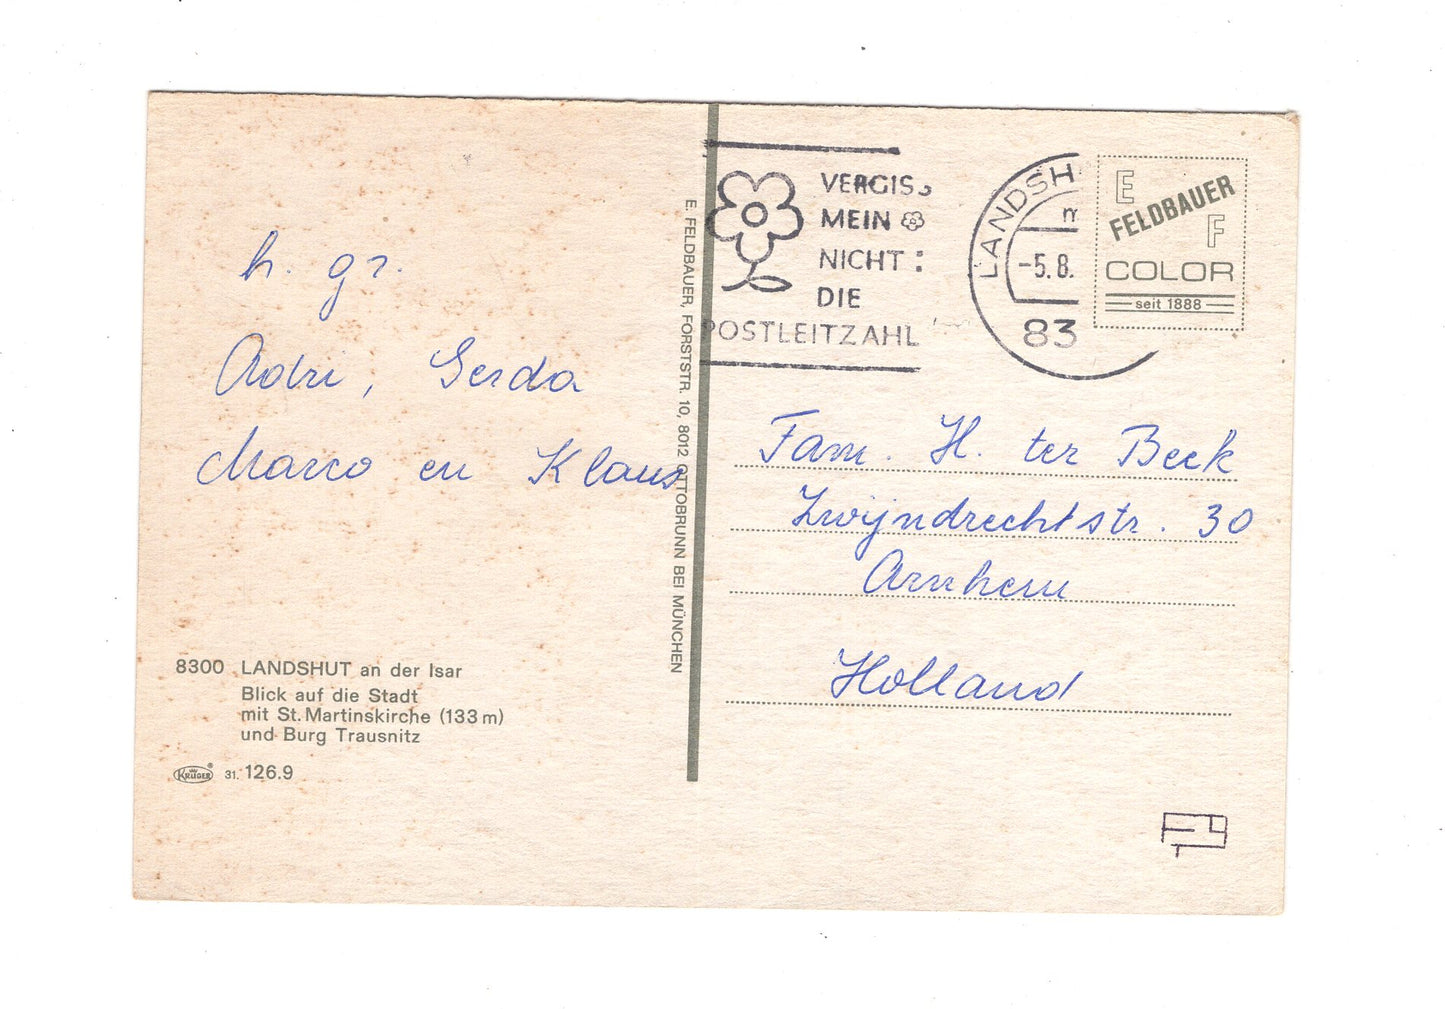 h. gr.
Adri, Gerda
Marco en Klaus
8300 LANDSHUT an der Isar
Blick auf die Stadt
mit St. Martinskirche (133 m)
und Burg Trausnitz
KRÜGER® 31. 126.9
E. FELDBAUER, FORSTSTR. 10, 8012 OTTOBRUNN BEI MÜNCHEN
VERGISS
MEIN
NICHT:
DIE
POSTLEITZAHL
LANDSH
m
-5.8.
83
E
FELDBAUER
F
COLOR
seit 1888
Fam. H. ter Beek
Zwijndrechtstr. 30
Arnhem
Holland